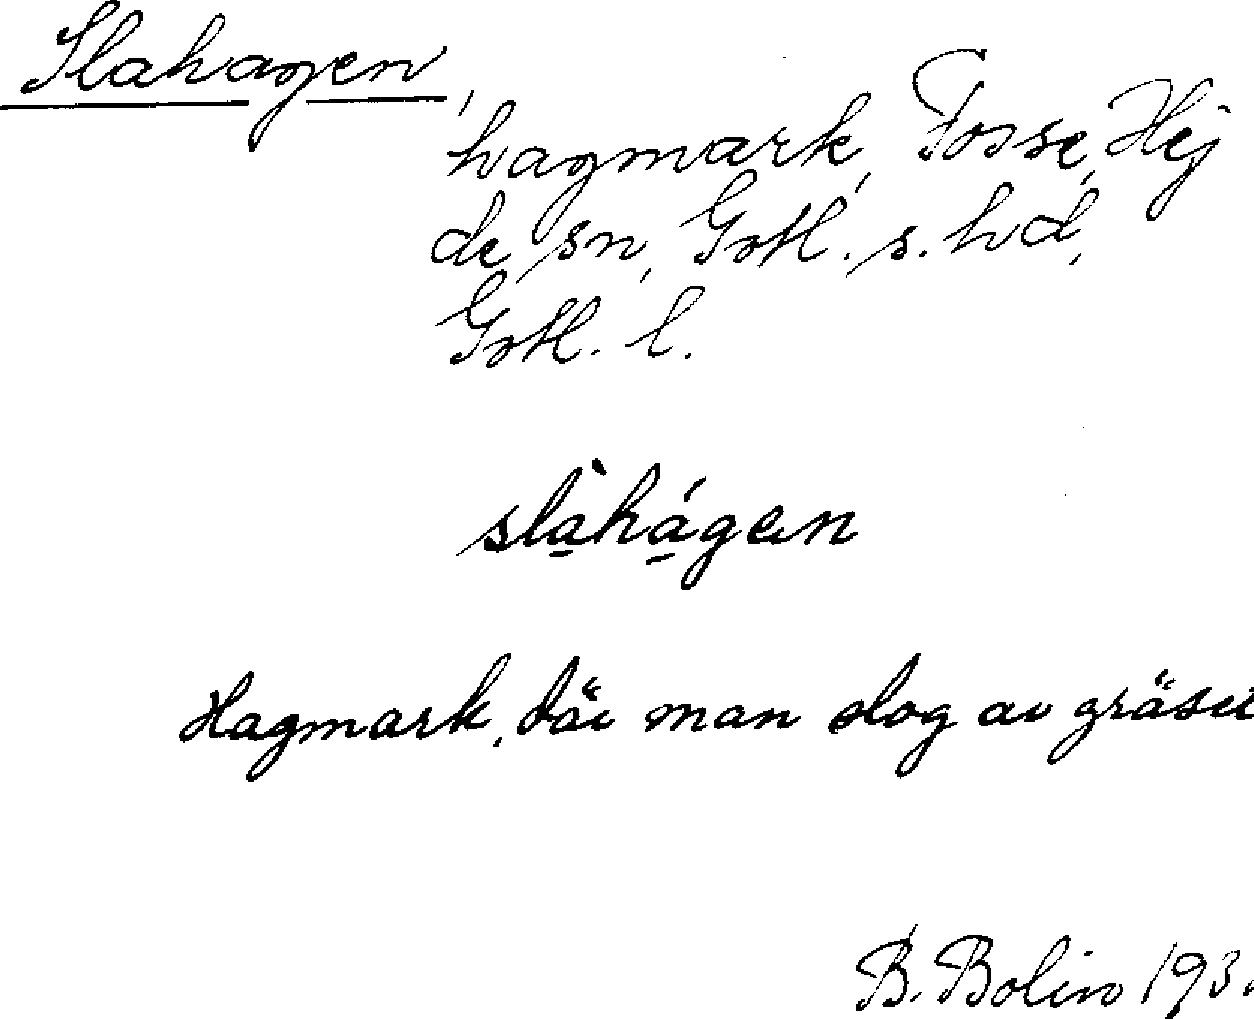 Slahagen,
hagmark, Fosse, Hej
de sn, Gotl. s. hd,
Gotl. l.
slahagen
Hagmark, där man slog av gräset
B. Bolin 193